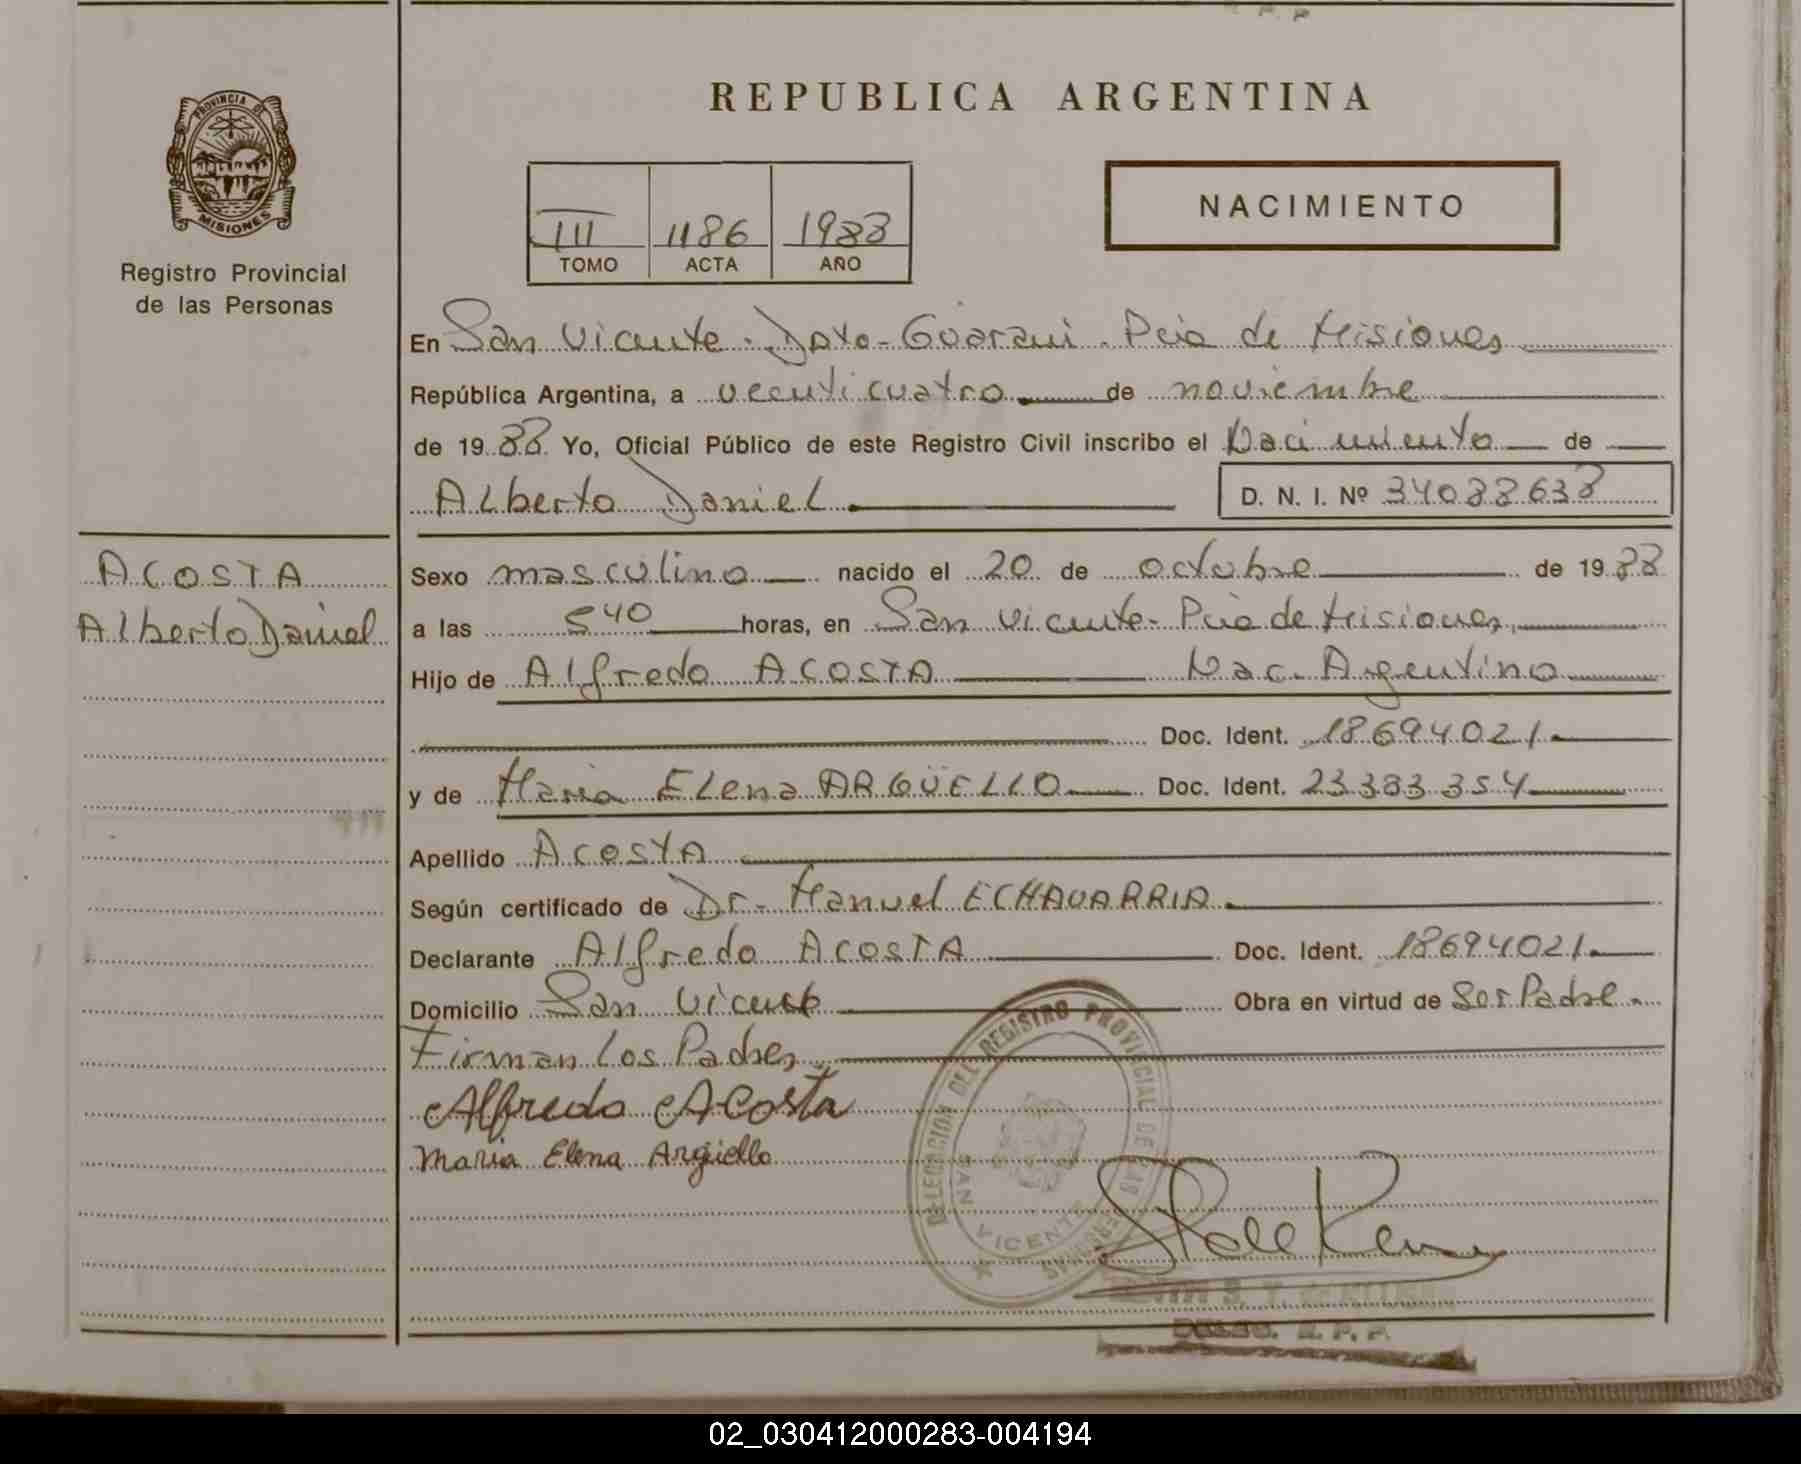 REPUBLICA ARGENTINA
PROVINCIA DE
MISIONES
Registro Provincial
de las Personas
III 1186 1988
TOMO ACTA AÑO
NACIMIENTO
En San Vicente - Dpto - Guarani - Pcia de Misiones
República Argentina, a veenticuatro de noviembre
de 1988 Yo, Oficial Público de este Registro Civil inscribo el Nacimiento de
Alberto Daniel D. N. I. Nº 34088638
ACOSTA
Alberto Daniel
Sexo masculino nacido el 20 de octubre de 1988
a las 5 40 horas, en San Vicente - Pcia de Misiones,
Hijo de Alfredo ACOSTA Nac. Argentino
Doc. Ident. 18694021
y de Maria ELena ARGÜELLO Doc. Ident. 23383354
Apellido ACOSTA
Según certificado de Dr. Manuel ECHAVARRIA
Declarante Alfredo ACOSTA Doc. Ident. 18694021
Domicilio San Vicente Obra en virtud de Ser Padre.
Firman Los Padres
Alfredo Acosta
Maria Elena Argüello
DELEGACION DEL REGISTRO PROVINCIAL DE LAS PERSONAS
SAN VICENTE
R. P. P.
02_030412000283-004194